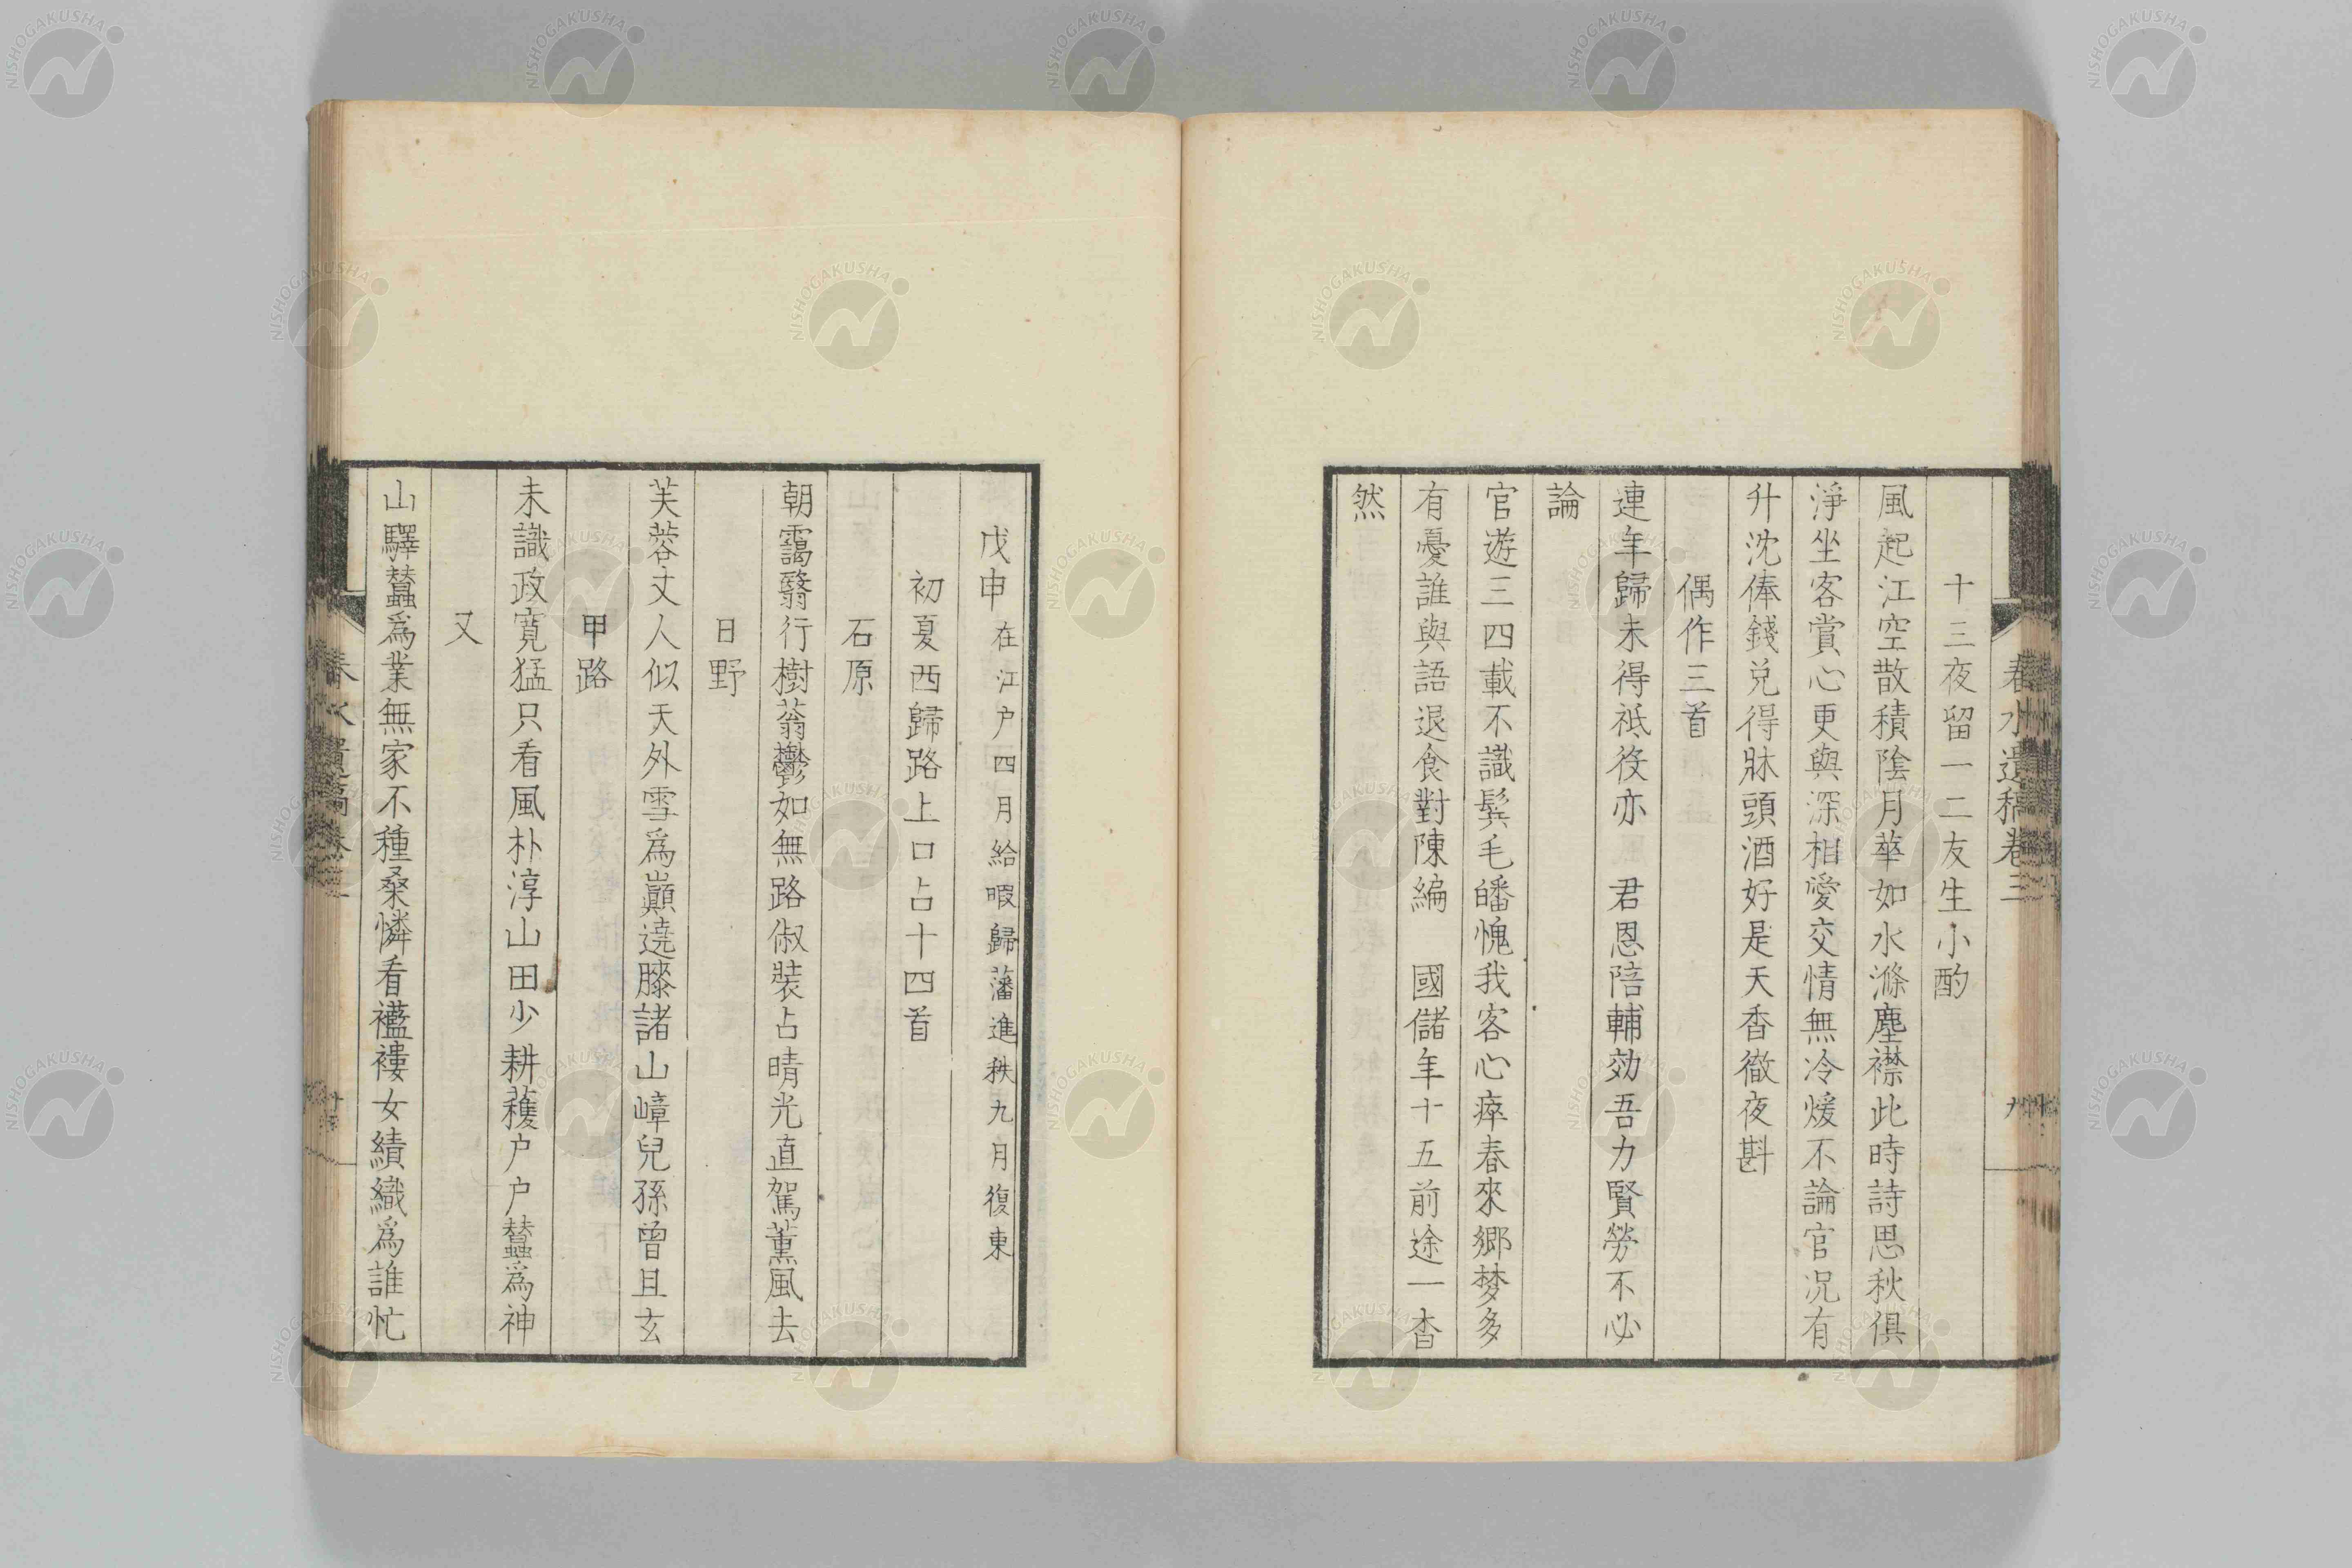 春水遺稿卷三
九
十三夜留一二友生小酌
風起江空散積陰月華如水滌塵襟此時詩思秋俱
淨坐客賞心更與深相愛交情無冷煖不論官况有
升沈俸錢兑得牀頭酒好是天香徹夜斟
偶作三首
連年歸未得祇役亦　君恩陪輔効吾力賢勞不必
論
官遊三四載不識鬂毛皤愧我客心瘁春來鄉梦多
有憂誰與語退食對陳編　國儲年十五前途一杳
然
戊申在江户四月給暇歸藩進秩九月復東
初夏西歸路上口占十四首
石原
朝靄翳行樹蓊鬱如無路俶裝占晴光直駕薫風去
日野
芙蓉丈人似天外雪爲巓遶膝諸山嶂兒孫曾且玄
甲路
未識政寛猛只看風朴淳山田少耕穫户户蠶爲神
又
山驛蠶爲業無家不種桑憐看襤褸女績織爲誰忙
NISHOGAKUSHA